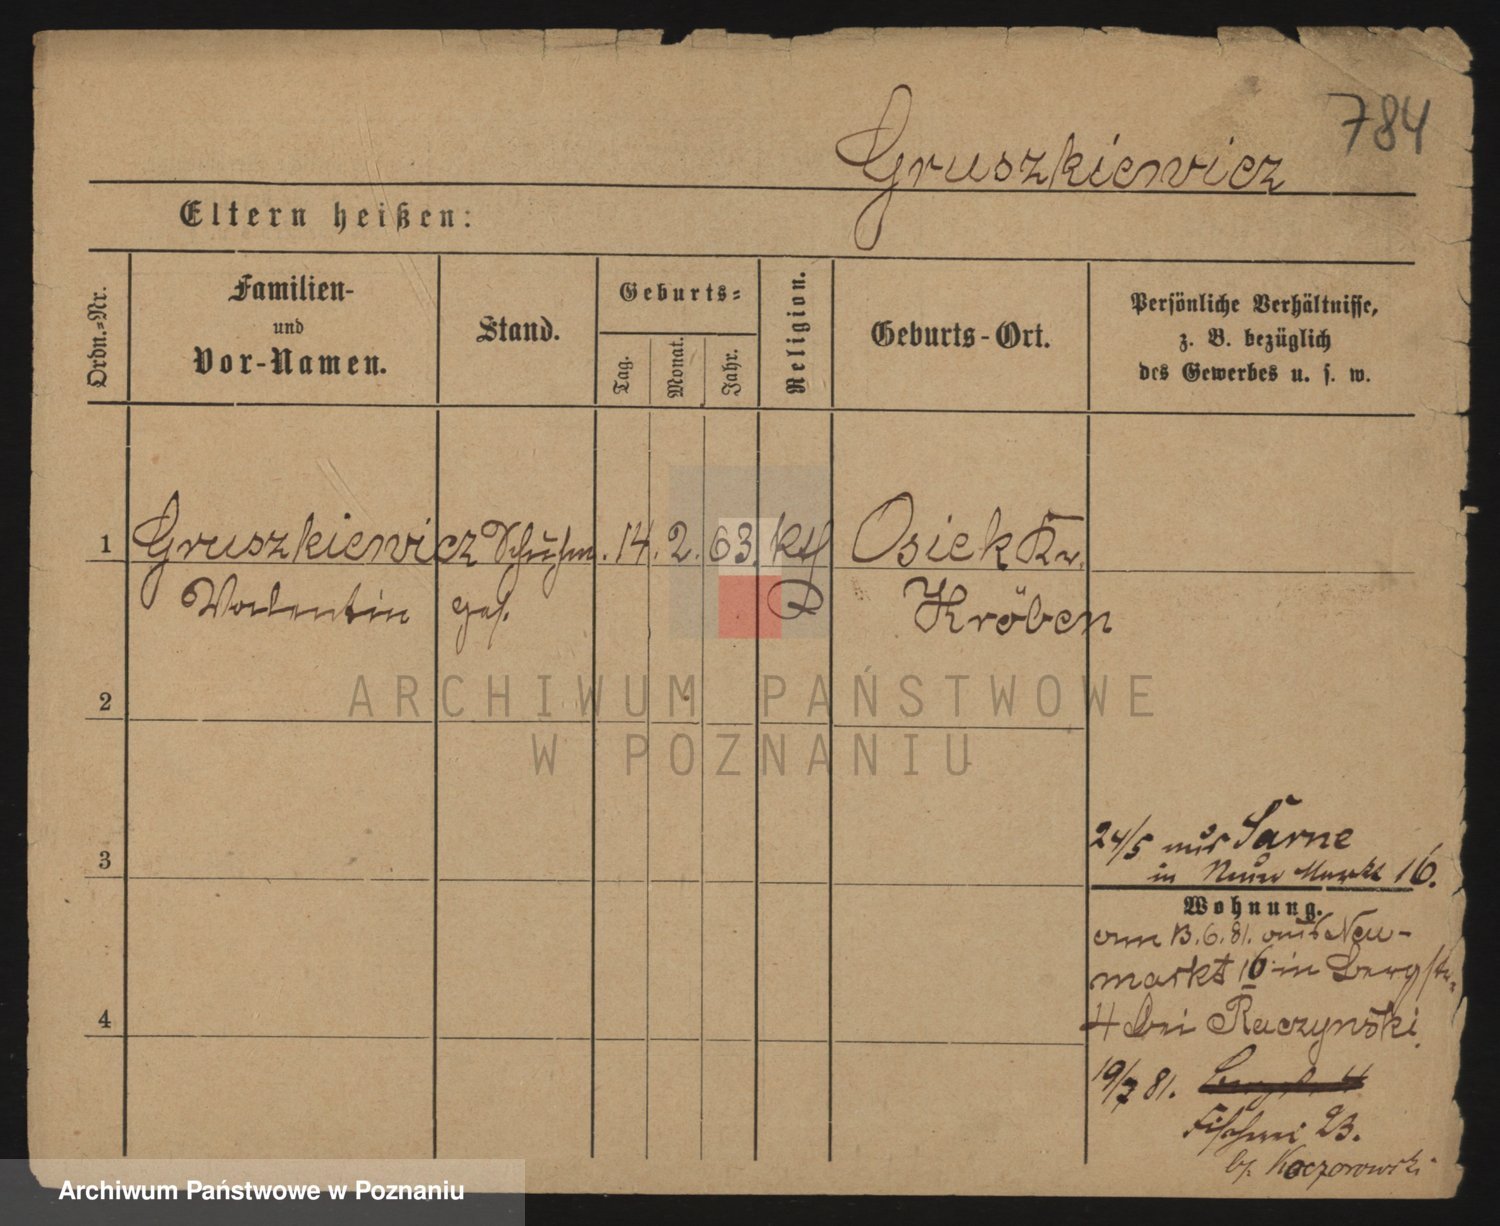 784
Gruszkiewicz
Eltern heißen:
Ordn.=Nr.
Familien-
und
Vor-Namen.
Stand.
Geburts=
Tag.
Monat.
Jahr.
Religion.
Geburts-Ort.
Persönliche Verhältnisse,
z. B. bezüglich
des Gewerbes u. s. w.
1 Gruszkiewicz Schuhm. 14. 2. 63. kth Osiek Kr.
Valentin ges. Kröben
ARCHIWUM PAŃSTWOWE
W POZNANIU
2
3
4
24/5 aus Sarne
in Neuer Markt 16.
Wohnung.
am 13.6.81. aus Neu-
markt 16 in Bergstr.
4 bei Raczynski
19/7 81. Bergstr. 4
Fischerei 23.
b/ Koczorowski
Archiwum Państwowe w Poznaniu